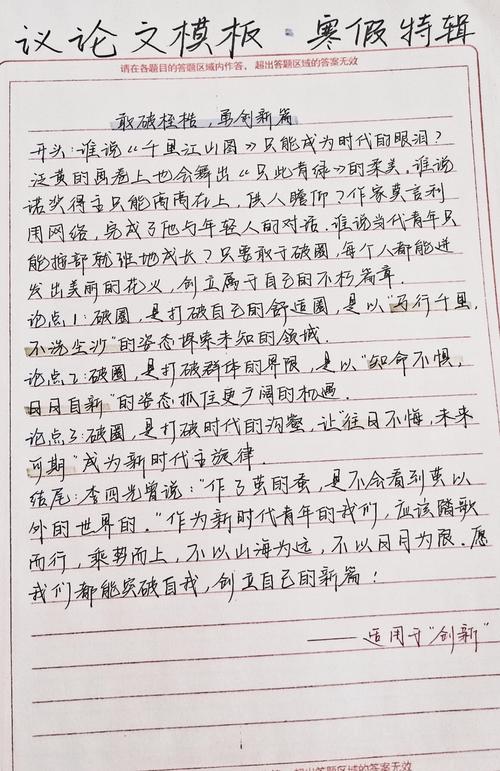 议论文模板·寒假特辑
请在各题目的答题区域内作答，超出答题区域的答案无效
敢破桎梏，勇创新篇
开头：谁说《千里江山图》只能成为时代的眼泪？
泛黄的画卷上也会舞出《只此青绿》的柔美。谁说
诺奖得主只能高高在上，供人瞻仰？作家莫言利
用网络，完成了他与年轻人的对话。谁说当代青年只
能按部就班地成长？只要敢于破圈，每个人都能迸
发出美丽的花火，创立属于自己的不朽篇章。
论点1：破圈，是打破自己的舒适圈，是以"万行千里，
不洗尘沙"的姿态探索未知的领域．
论点2：破圈，是打破群体的界限，是以"知命不惧，
日日自新"的姿态抓住更广阔的机遇．
论点3：破圈，是打破时代的沟壑，让"往日不悔，未来
可期"成为新时代主旋律．
结尾：李四光曾说："作了茧的蚕，是不会看到茧以
外的世界的．"作为新时代青年的我们，应该踏歌
而行，乘势而上，不以山海为远，不以日月为限．愿
我们都能突破自我，创立自己的新篇！
——适用于"创新"
超出答题区域的答案无效